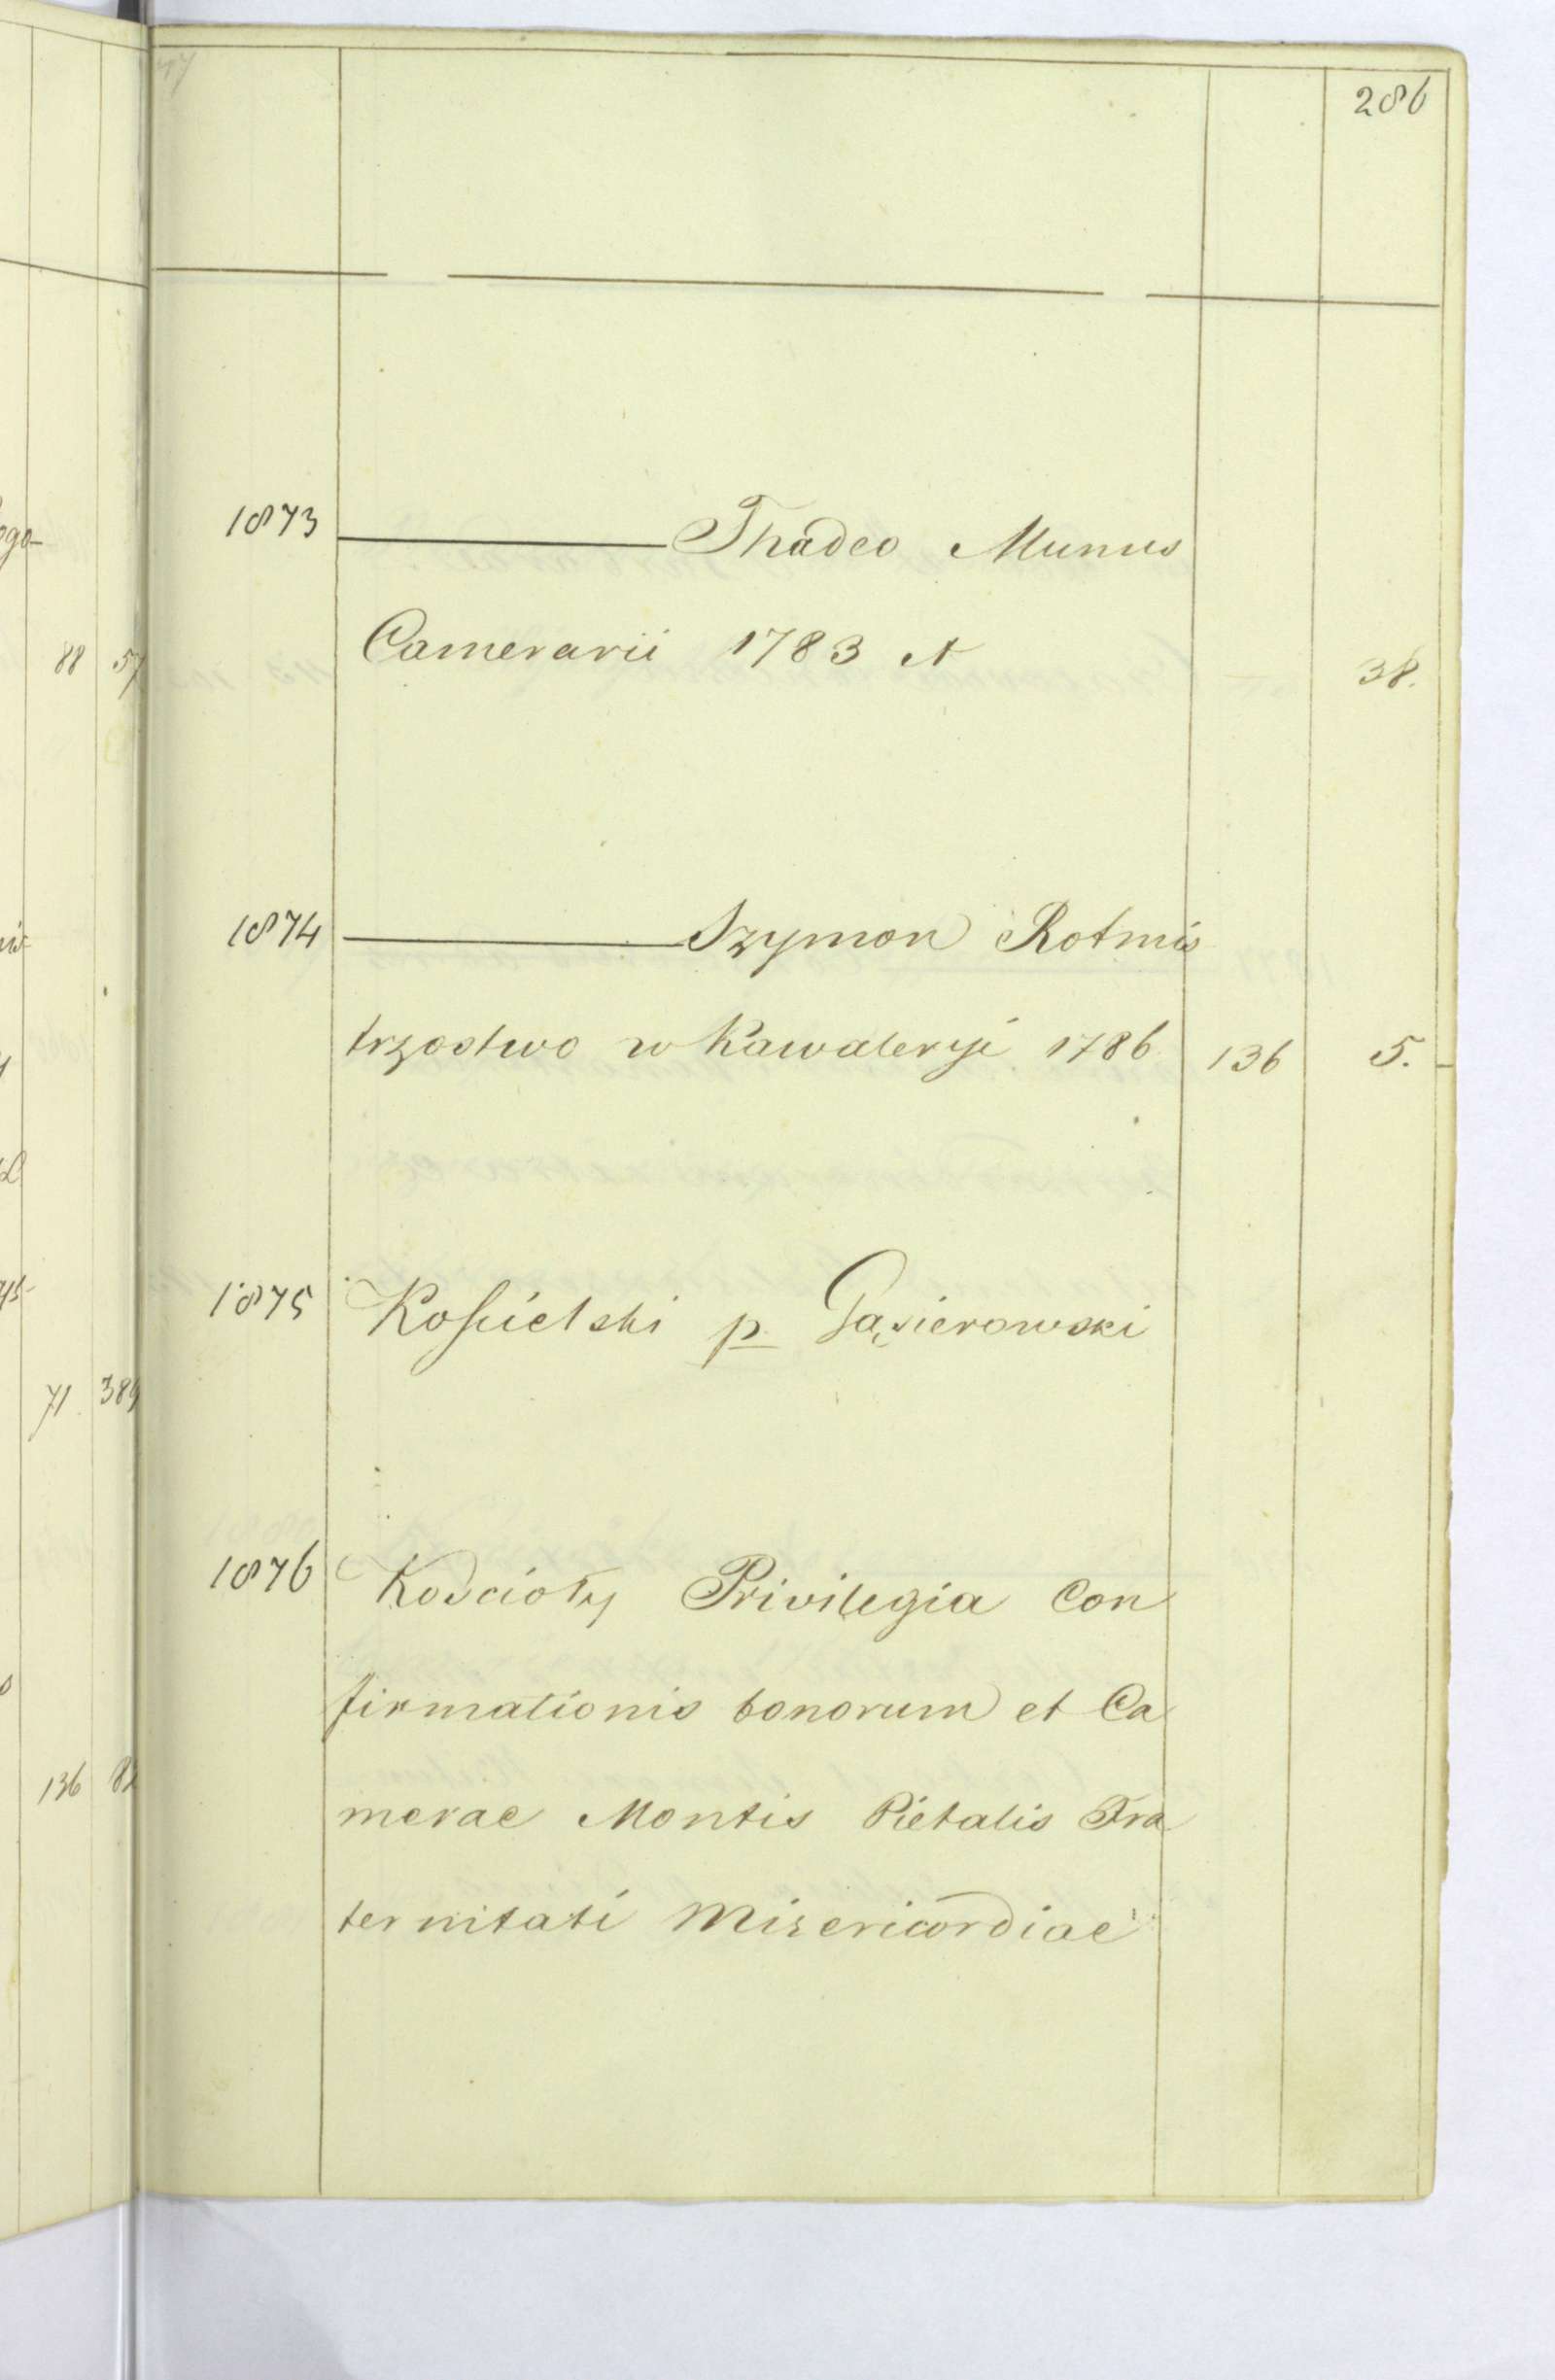 286
1873 ——— Thadeo Munus
Camerarii 1783 A 38.
1874 ——— Szymon Rotmis
trzostwo w Kawaleryi 1786 136 5.
1875 Kosſcielski p. Gąsierowski
1876 Kościoły Privilegia Con
firmationis bonorum et Ca
merae Montis Pietatis Fra
ternitati Misericordiae
88 57
71 389
136 82